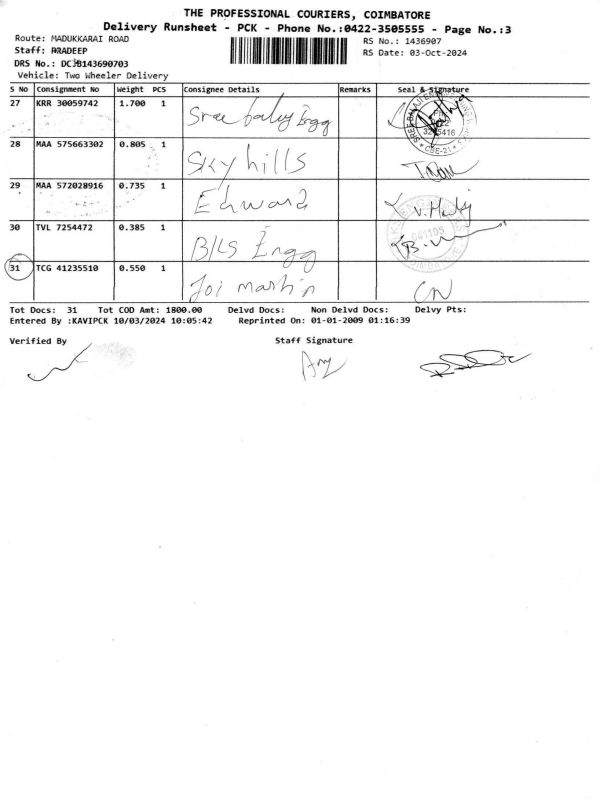 THE PROFESSIONAL COURIERS, COIMBATORE
Delivery Runsheet - PCK - Phone No.:0422-3505555 - Page No.:3
Route: MADUKKARAI ROAD
RS No.: 1436907
Staff: PRADEEP
RS Date: 03-Oct-2024
DRS No.: DCJB143690703
Vehicle: Two Wheeler Delivery
S No Consignment No Weight PCS Consignee Details Remarks Seal & Signature
27 KRR 30059742 1.700 1 Sree balaji Engg
28 MAA 575663302 0.805 1 Sky hills
29 MAA 572028916 0.735 1 Edward
30 TVL 7254472 0.385 1 B/LS Engg
31 TCG 41235510 0.550 1 Joi martin
Tot Docs: 31 Tot COD Amt: 1800.00 Delvd Docs: Non Delvd Docs: Delvy Pts:
Entered By :KAVIPCK 10/03/2024 10:05:42 Reprinted On: 01-01-2009 01:16:39
Verified By Staff Signature